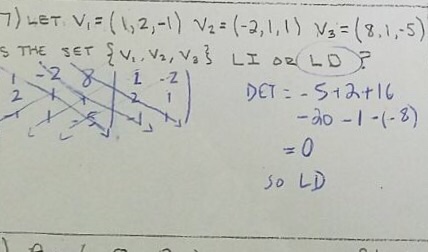 7) LET V₁ = (1, 2, -1) V₂ = (-2, 1, 1) V₃ = (8, 1, -5)
S THE SET {V₁, V₂, V₃} LI OR LD?
1 -2 8 1 -2
2 1 1 2 1
1 -5 -1 1
DET = -5 + 2 + 16
-20 - 1 - (-8)
= 0
SO LD